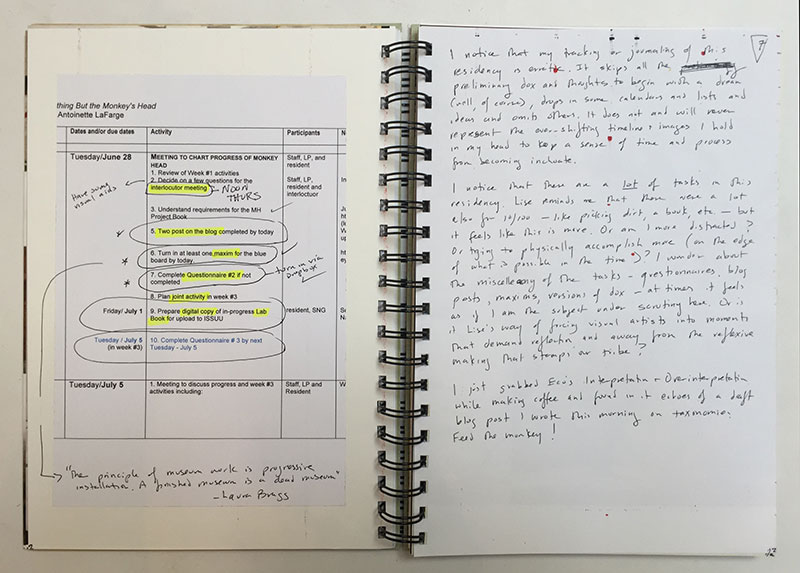 thing But the Monkey's Head
Antoinette LaFarge
Dates and/or due dates Activity Participants N
Tuesday/June 28 MEETING TO CHART PROGRESS OF MONKEY HEAD Staff, LP, and resident
1. Review of Week #1 activities
2. Decide on a few questions for the interlocutor meeting Staff, LP, resident and interloctuor
NOON THURS
Have some visual aids
3. Understand requirements for the MH Project Book
5. Two post on the blog completed by today
6. Turn in at least one maxim for the blue board by today.
7. Complete Questionnaire #2 if not completed
turn in via Dropbox
8. Plan joint activity in week #3
Friday/ July 1 9. Prepare digital copy of in-progress Lab Book for upload to ISSUU resident, SNG
Tuesday / July 5 (in week #3) 10. Complete Questionnaire # 3 by next Tuesday - July 5
Tuesday/July 5 1. Meeting to discuss progress and week #3 activities including: Staff, LP and Resident
"The principle of museum work is progressive
installation. A finished museum is a dead museum"
- Laura Bragg
I notice that my tracking or journaling of this
residency is erratic. It skips all the
preliminary dox and thoughts to begin with a dream
(well, of course), drops in some calendars and lists and
ideas and omits others. It does not and will never
represent the ever-shifting timeline + images I hold
in my head to keep a sense of time and process
from becoming inchoate.
I notice that there are a lot of tasks in this
residency. Lise reminds me that there were a lot
also for 10/100 – like picking dirt, a book, etc – but
it feels like this is more. Or am I more distracted?
Or trying to physically accomplish more (on the edge
of what is possible in the time)? I wonder about
the miscellany of the tasks – questionnaires, blog
posts, maxims, versions of dox – at times it feels
as if I am the subject under scrutiny here. Or is
it Lise's way of forcing visual artists into moments
that demand reflection and away from the reflexive
making that stamps our tribe?
I just grabbed Eco's Interpretation + Overinterpretation
while making coffee and found in it echoes of a draft
blog post I wrote this morning on taxonomies.
Feed the monkey!